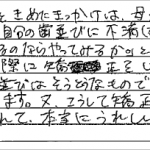 をきめたきっかけは、母
自分の歯並びに不満
るのならやってみるかのと
際に矯 正をし
並びはそうとうなもので
ます。又、こうして矯正
れて、本当にうれしい